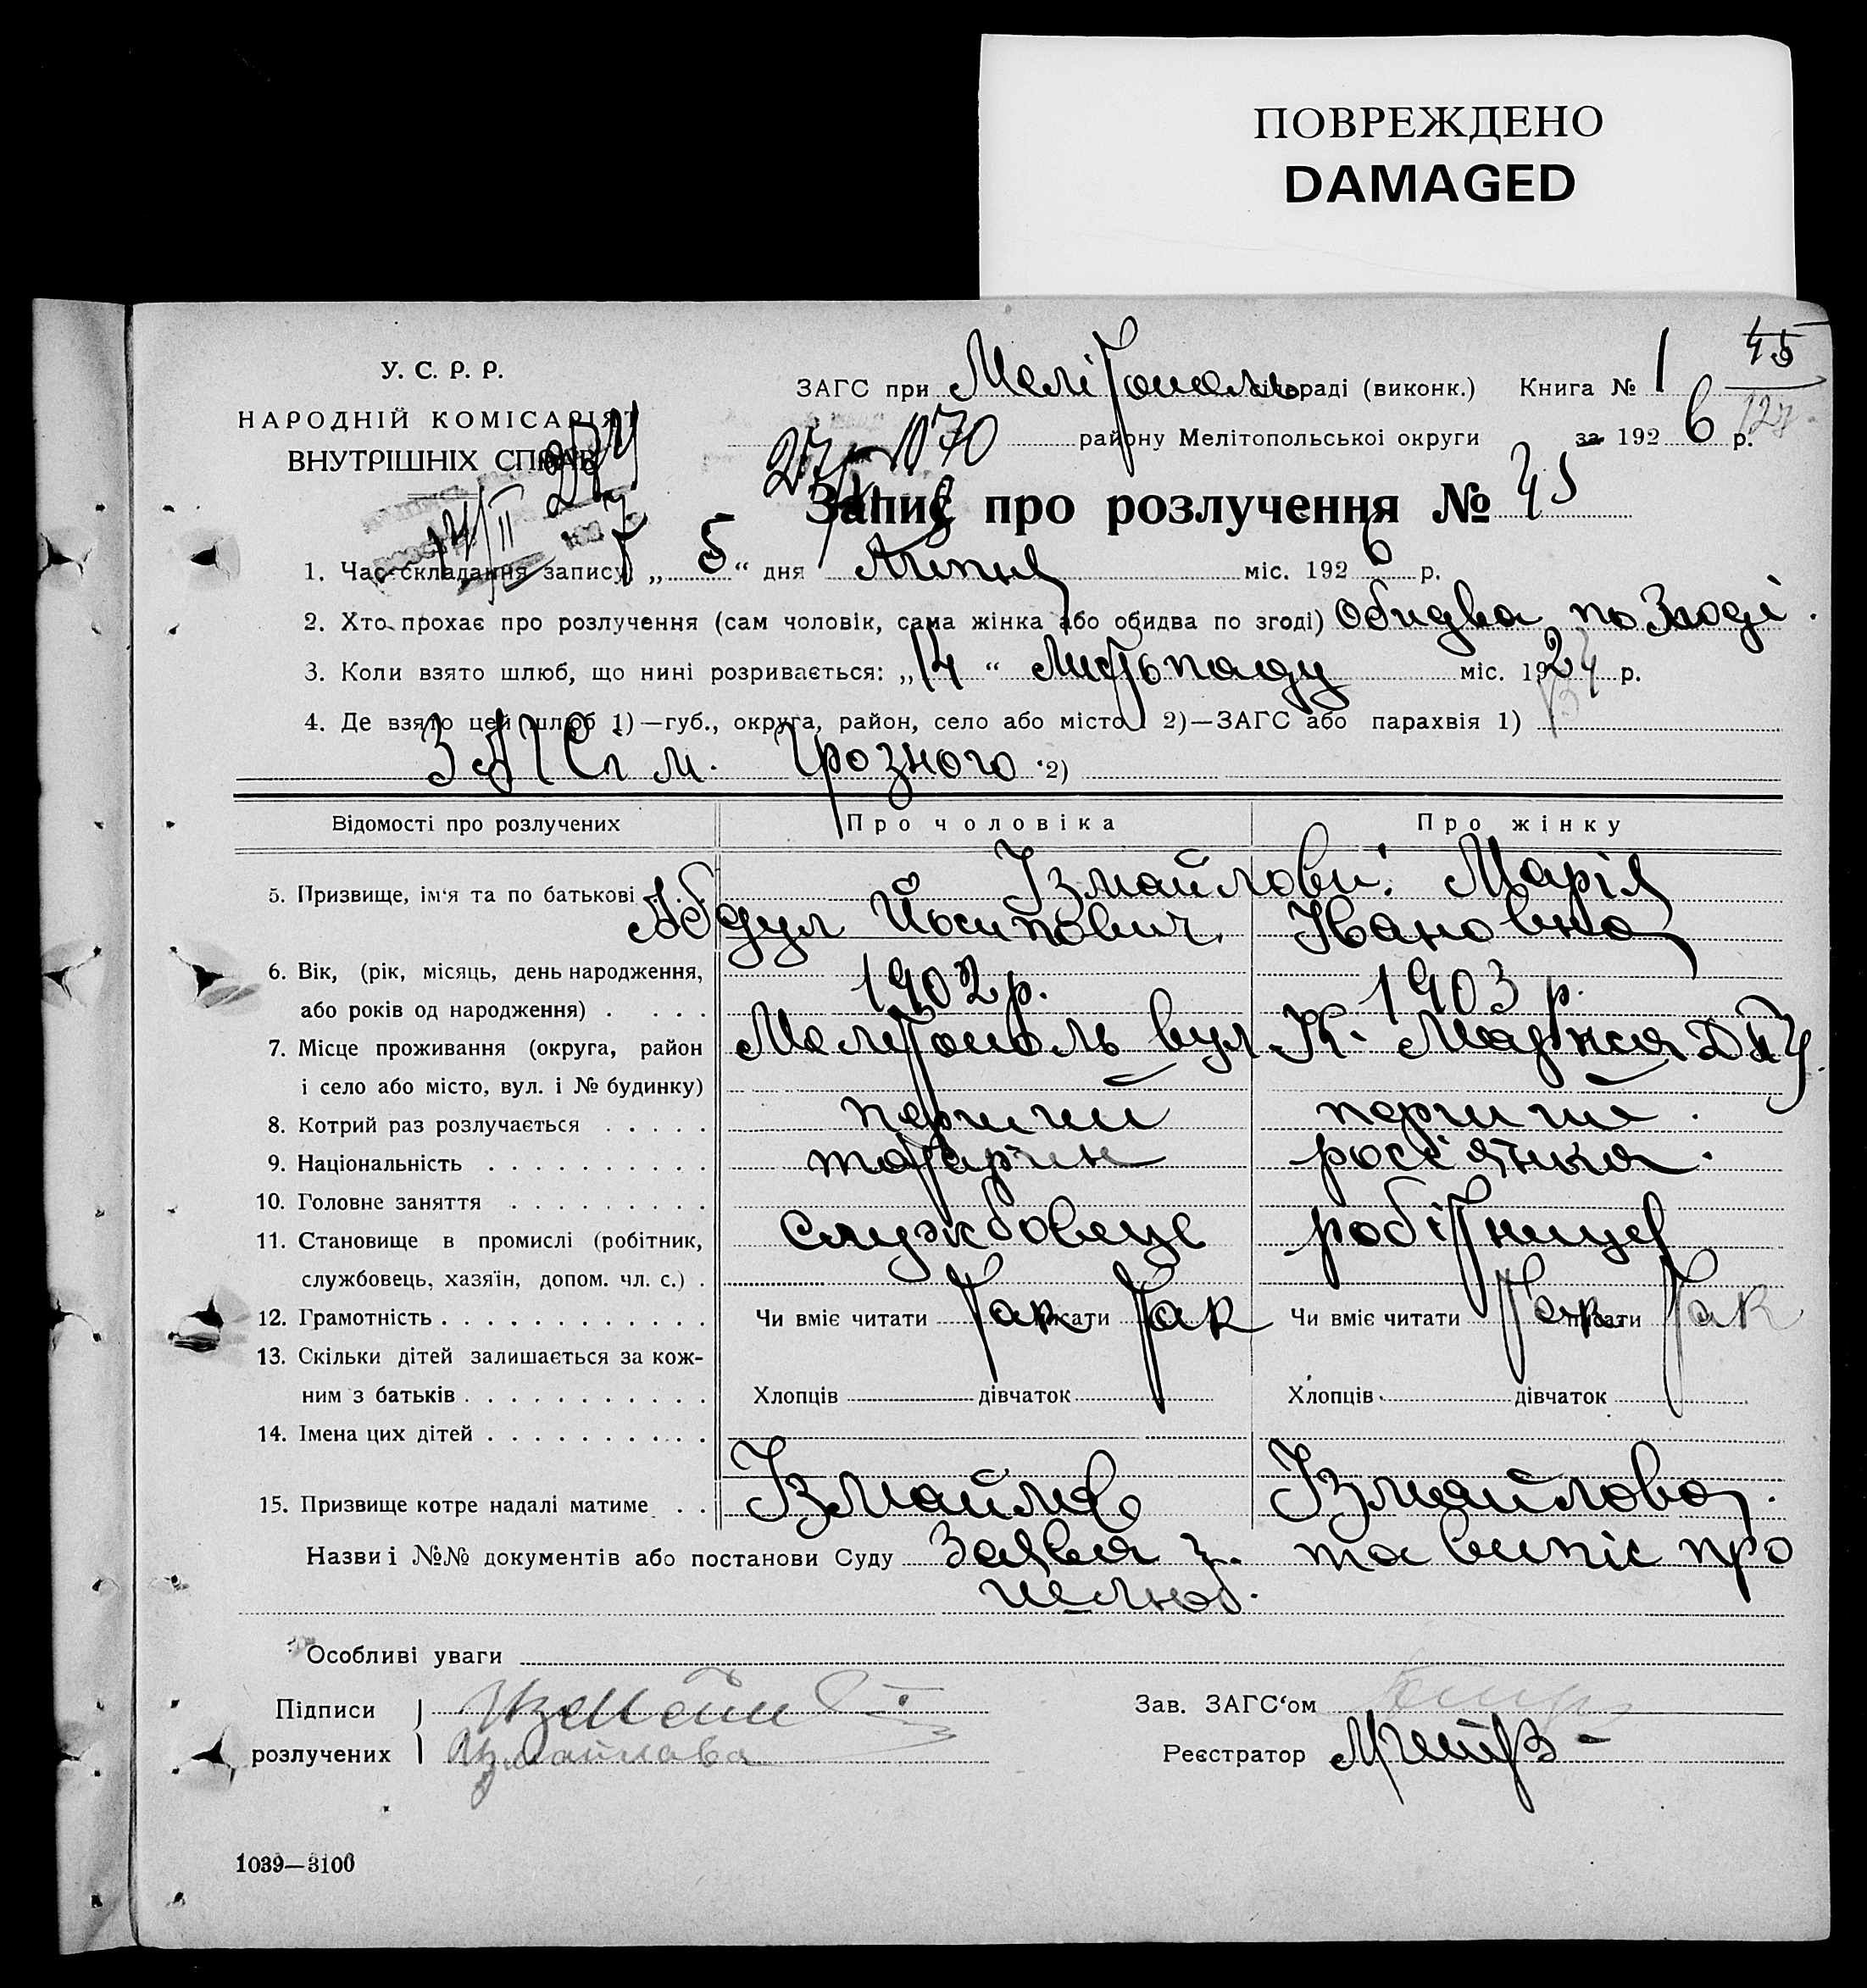 ПОВРЕЖДЕНО
DAMAGED
У. С. Р. Р.
НАРОДНІЙ КОМІСАРІЯТ
ВНУТРІШНІХ СПРАВ
ЗАГС при Мелітополь сільраді (виконк.) Книга № 1 45
району Мелітопольськоі округи за 192 6 р.
Запис про розлучення № 45
1. Час складання запису „ 5 “ дня Липня міс. 192 6 р.
2. Хто прохає про розлучення (сам чоловік, сама жінка або обидва по згоді) Обидва по Згоді.
3. Коли взято шлюб, що нині розривається: „ 14 “ Листопаду міс. 1924 р.
4. Де взято цей шлюб 1)—губ., округа, район, село або місто і 2)—ЗАГС або парахвія 1)
ЗАГСі м. Грозного 2)
Відомості про розлучених Про чоловіка Про жінку
5. Призвище, ім‘я та по батькові Ізмайлови: Марія
Абдул Йосипович Івановна
6. Вік, (рік, місяць, день народження, 1902 р. 1903 р.
або років од народження)
7. Місце проживання (округа, район Мелітополь вул. К. Маркса
і село або місто, вул. і № будинку)
8. Котрий раз розлучається перший перший.
9. Національність татарин росіянка.
10. Головне заняття
11. Становище в промислі (робітник, Службовець робітниця
службовець, хазяїн, допом. чл. с.)
12. Грамотність Чи вміє читати Так писати Так Чи вміє читати Так писати Так
13. Скільки дітей залишається за кож-
ним з батьків Хлопців дівчаток Хлопців дівчаток
14. Імена цих дітей
15. Призвище котре надалі матиме Ізмайлов Ізмайлова.
Назви і №№ документів або постанови Суду Заява та випіс про
шлюб.
Особливі уваги
Підписи Зав. ЗАГС‘ом
розлучених Измайлова Реєстратор
1039—3100